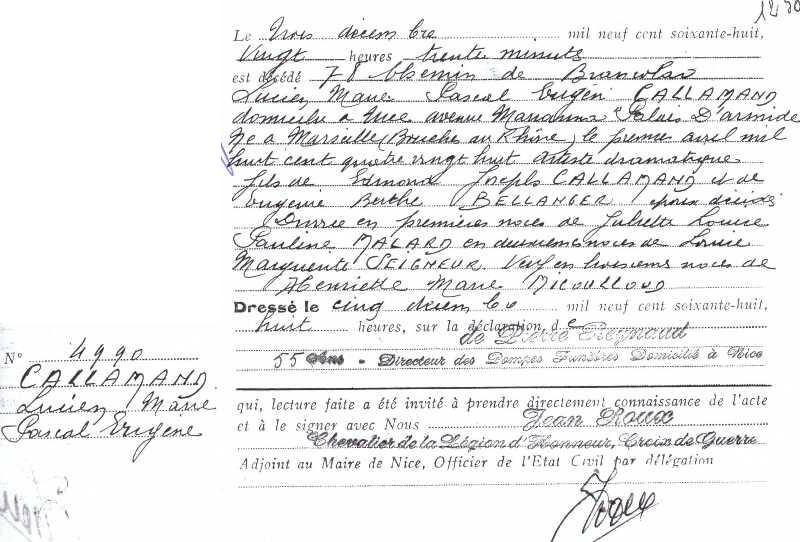 1230
Le Trois décembre mil neuf cent soixante-huit,
Vingt heures trente minutes
est décédé 78 Chemin de Brancolar
Lucien Marie Pascal Eugène CALLAMAND
domicilié à Nice avenue Marianna Palais D'armide
Né à Marseille (Bouches du Rhône) le premier avril mil
huit cent quatre vingt huit Artiste dramatique
fils de Edmond Joseph CALLAMAND et de
Eugénie Berthe BELLANGER époux décédés
Divorcé en premières noces de Juliette Louise
Pauline MALARD en deuxièmes noces de Louise
Marguerite SEIGNEUR. Veuf en troisièmes noces de
Henriette Marie MICOULLOUD
Dressé le cinq décembre mil neuf cent soixante-huit,
huit heures, sur la déclaration de
de Pierre Reynaud
55 ans - Directeur des Pompes Funèbres Domicilié à Nice
N° 4990
CALLAMAND
Lucien Marie
Pascal Eugène
qui, lecture faite a été invité à prendre directement connaissance de l'acte
et à le signer avec Nous Jean Roux
Chevalier de la Légion d'Honneur, Croix de Guerre
Adjoint au Maire de Nice, Officier de l'Etat Civil par délégation
Roux